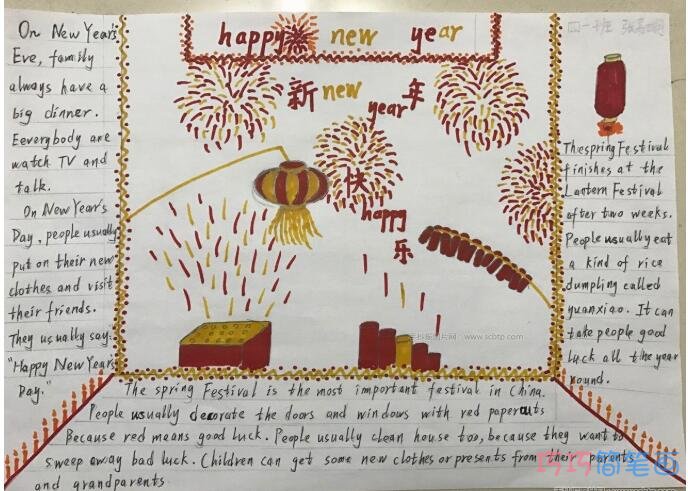 happy new year
新 new year 年
快 happy 乐
On New Year's
Eve, family
always have a
big dinner.
Eeverybody are
watch TV and
talk.
On New Year's
Day, people usually
put on their new
clothes and visit
their friends.
They usually say:
"Happy New Year's
Day."
Thespring Festival
finishes at the
Lantern Festival
after two weeks.
People usually eat
a kind of rice
dumpling called
yuanxiao. It can
take people good
luck all the year
round.
The spring Festival is the most important festival in China.
People usually decorate the doors and windows with red papercuts
Because red means good luck. People usually clean house too, because they want to
sweep away bad luck. Children can get some new clothes or presents from their parents
and grandparents.
www.scbtp.com
巧巧简笔画